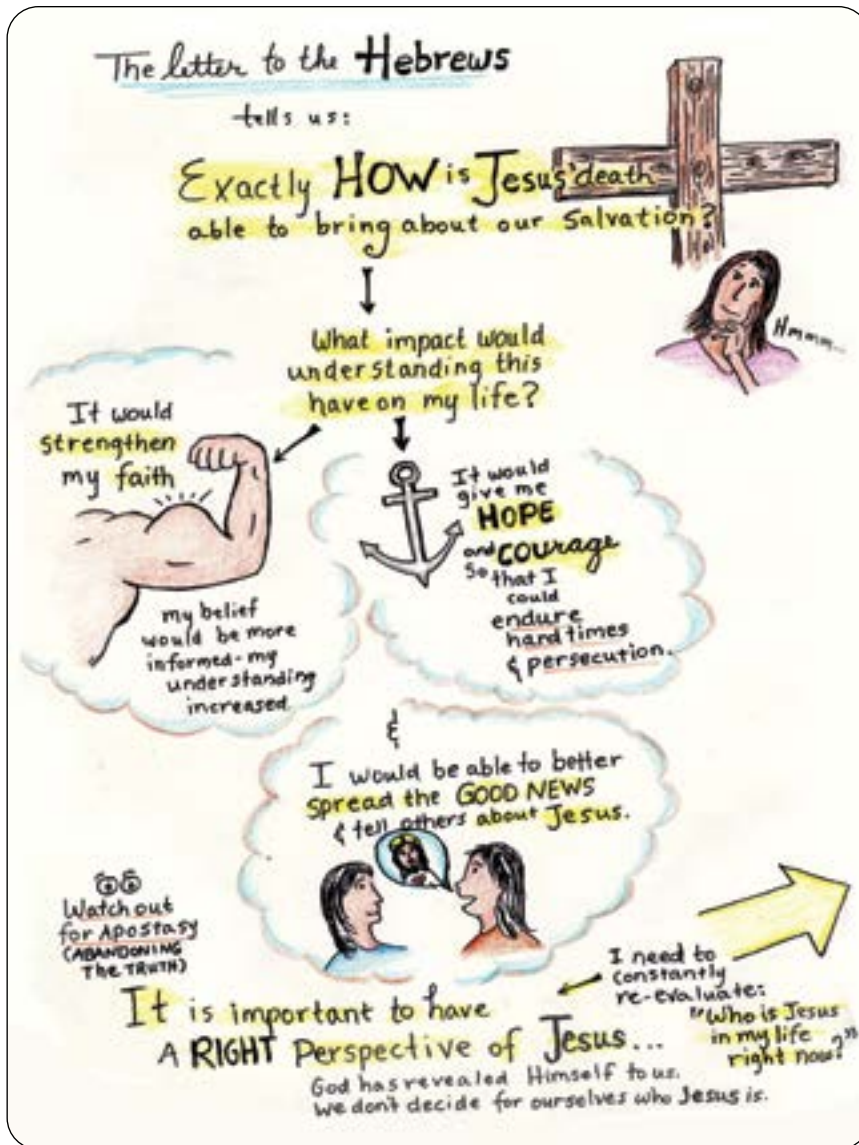 The letter to the Hebrews
tells us:
Exactly HOW is Jesus' death
able to bring about our Salvation?
Hmmm...
What impact would
understanding this
have on my life?
It would
strengthen
my faith
my belief
would be more
informed - my
understanding
increased
It would
give me
HOPE
and COURAGE
so that I
could
endure
hard times
& persecution.
&
I would be able to better
spread the GOOD NEWS
& tell others about Jesus.
Watch out
for Apostasy
(ABANDONING
The TRUTH)
I need to
constantly
re-evaluate:
"Who is Jesus
in my life
right now?"
It is important to have
A RIGHT Perspective of Jesus...
God has revealed Himself to us.
We don't decide for ourselves who Jesus is.